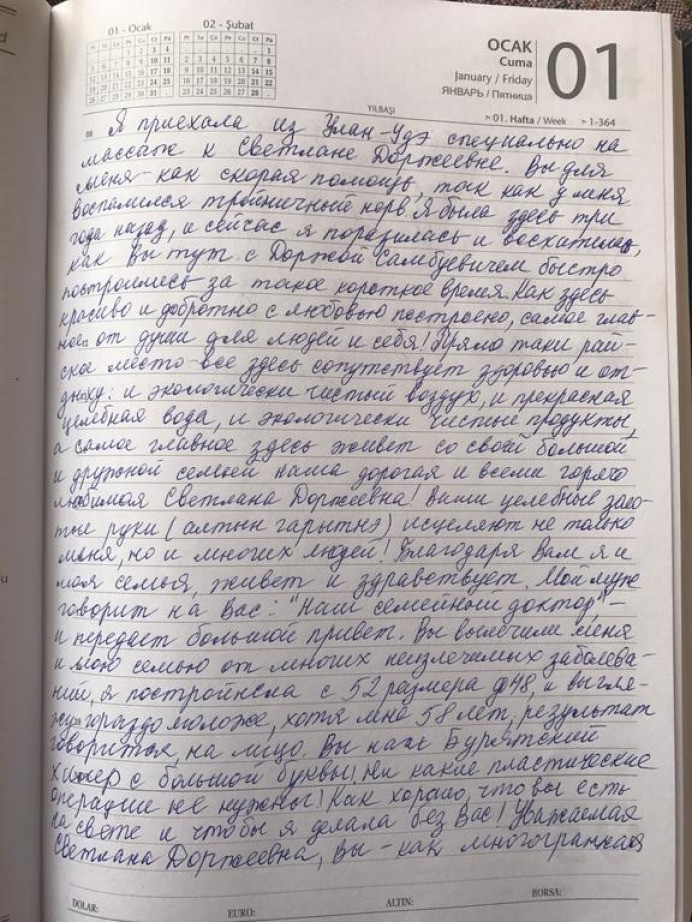 01 - Ocak
02 - Şubat
OCAK
Cuma
January / Friday
ЯНВАРЬ / Пятница
01
YILBAŞI
> 01. Hafta / Week > 1-364
08
Я приехала из Улан-Удэ специально на
массаж к Светлане Доржеевне. Вы для
меня - как скорая помощь, так как у меня
воспалился тройничный нерв. Я была здесь три
года назад, и сейчас я поразилась и восхитилась,
как Вы тут с Доржой Самбуевичем быстро
построились за такое короткое время. Как здесь
красиво и добротно с любовью построено, самое глав-
ное от души для людей и себя! Прямо таки рай-
ское место - все здесь сопутствует здоровью и от-
дыху: и экологически чистый воздух, и прекрасная
целебная вода, и экологически чистые продукты,
а самое главное здесь живет со своей большой
и дружной семьей наша дорогая и всеми горячо
любимая Светлана Доржеевна! Ваши целебные золо-
тые руки (алтын гарытнэ) исцеляют не только
меня, но и многих людей! Благодаря Вам я и
моя семья, живет и здравствует. Мой муж
говорит на Вас: "Наш семейный доктор" -
и передает большой привет. Вы вылечили меня
и мою семью от многих неизлечимых заболева-
ний, я постройнела с 52 размера до 48, и выгля-
жу гораздо моложе, хотя мне 58 лет, результат
говорится, на лицо. Вы наш Бурятский
Хилер с большой буквы! Ни какие пластические
операции не нужны! Как хорошо, что вы есть
на свете и чтобы я делала без Вас! Уважаемая
Светлана Доржеевна, Вы - как многогранная
DOLAR:
EURO:
ALTIN:
BORSA: